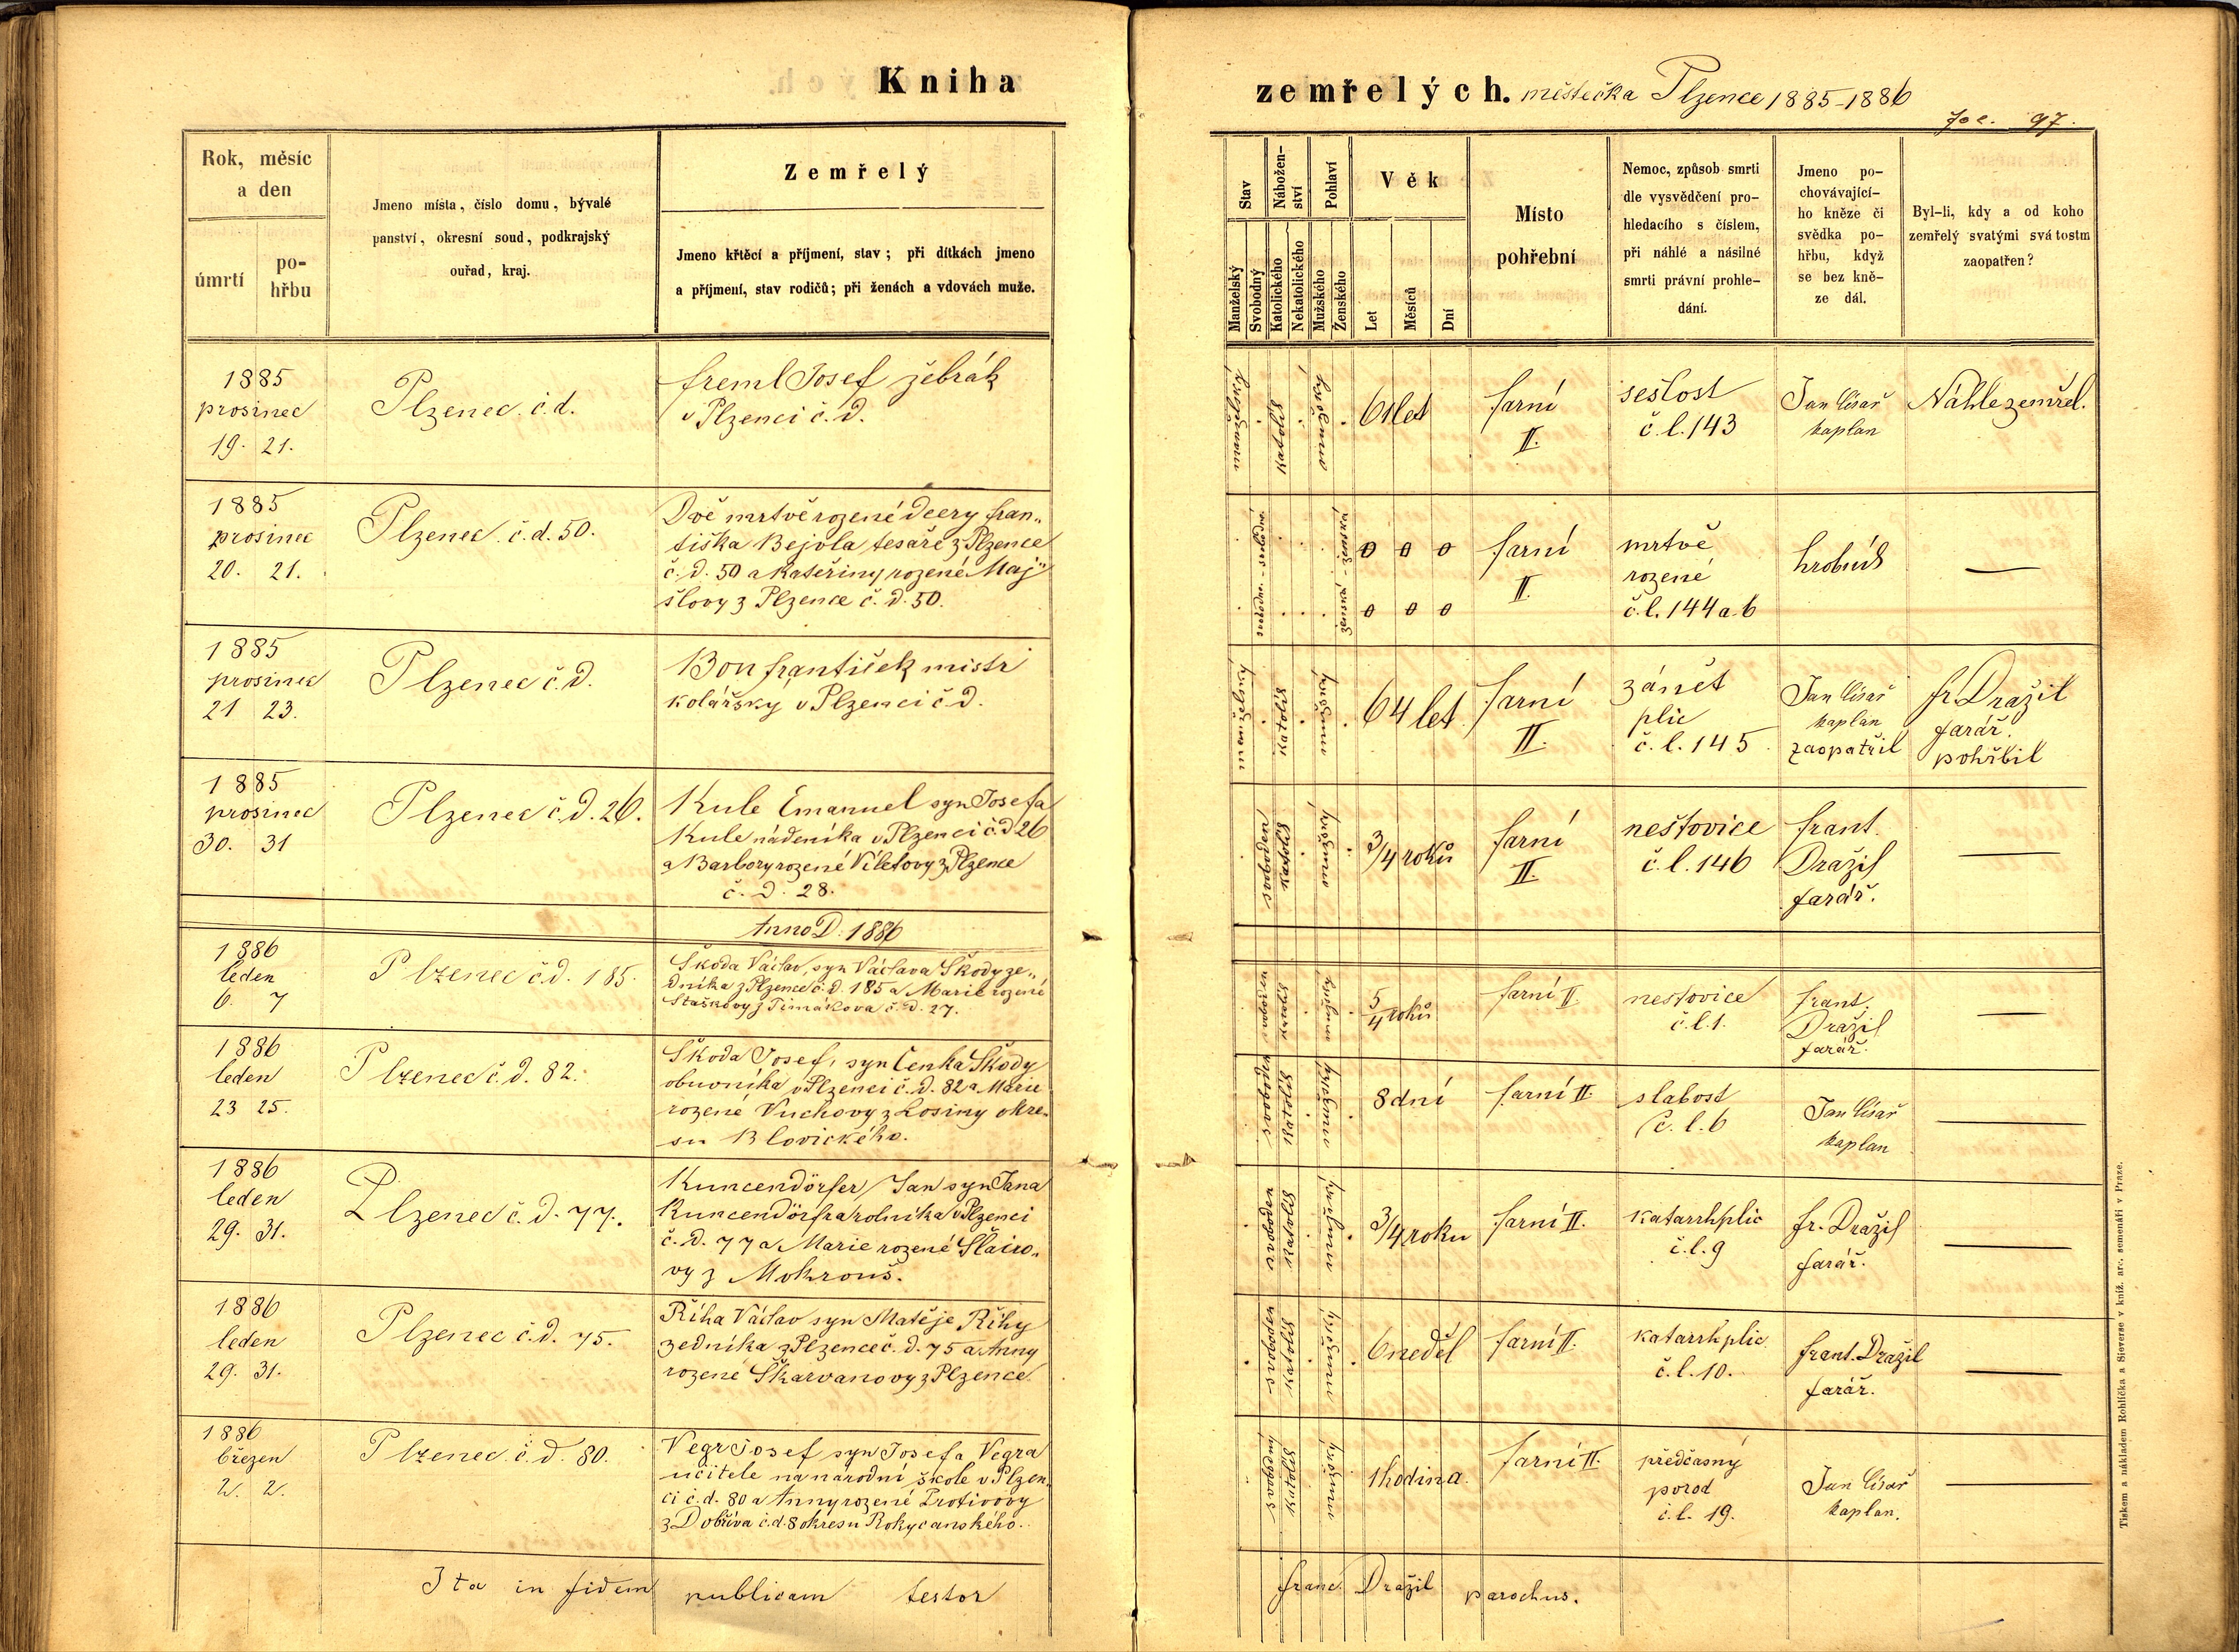 Kniha
zemřelých. městečka Plzence 1885-1886
Fol. 97.
Rok, měsíc
a den
úmrtí
po-
hřbu
Jmeno místa, číslo domu, bývalé
panství, okresní soud, podkrajský
ouřad, kraj.
Zemřelý
Jmeno křtěcí a příjmení, stav; při dítkách jmeno
a příjmení, stav rodičů; při ženách a vdovách muže.
Stav
Manželský
Svobodný
Nábožen-
ství
Katolického
Nekatolického
Pohlaví
Mužského
Ženského
Věk
Let
Měsíců
Dní
Místo
pohřební
Nemoc, způsob smrti
dle vysvědčení pro-
hledacího s číslem,
při náhlé a násilné
smrti právní prohle-
dání.
Jmeno po-
chovávající-
ho kněze či
svědka po-
hřbu, když
se bez kně-
ze dál.
Byl-li, kdy a od koho
zemřelý svatými svátostm
zaopatřen?
1885
prosinec
19. 21.
Plzenec. č.d.
Freml Josef žebrák
v Plzenci č.d.
manželský
katolík
mužský
61 let
farní
II.
sešlost
č.l. 143
Jan Císař
kaplan
Náhle zemřel.
1885
prosinec
20. 21.
Plzenec. č.d. 50.
Dvě mrtvě rozené dcery Fran„
tiška Bejvla tesaře z Plzence
č.d. 50 a Kateřiny rozené Maj„
šlovy z Plzence č.d. 50.
svobodná - svobodná
ženská - ženská
0 0 0
0 0 0
farní
II.
mrtvě
rozené
č.l. 144 a. b
hrobník
—
1885
prosinec
21 23.
Plzenec č.d.
Bon František mistr
kolářský v Plzenci č.d.
manželský
katolík
mužský
64 let.
farní
II.
zánět
plic
č.l. 145.
Jan Císař
kaplan
zaopatřil
Fr. Dražil
farář.
pohřbil
1885
prosinec
30. 31
Plzenec č.d. 26.
Kule Emanuel syn Josefa
Kule nádeníka v Plzenci č.d 26
a Barbory rozené Viletovy z Plzence
č.d. 28.
svoboden
katolík
mužský
3/4 roků
farní
II.
neštovice
č.l. 146
Frant.
Dražil
farář.
—
Anno D. 1886
1886
leden
6. 7
Plzenec č.d. 185.
Škoda Václav, syn Václava Škody ze„
dníka z Plzence č.d. 185 a Marie rozené
Staškovy z Timákova č.d. 27.
svoboden
katolík
mužský
5/4 roků
farní II.
neštovice
č.l. 1.
Frant.
Dražil
farář.
—
1886
leden
23 25.
Plzenec č.d. 82.
Škoda Josef, syn Čenka Škody
obuvníka v Plzenci č.d. 82 a Marie
rozené Vuchovy z Losiny okre„
su Blovického.
svoboden
katolík
mužský
8 dní
farní II.
slabost
č.l. 6
Jan Císař
kaplan
—
1886
leden
29. 31.
Plzenec č.d. 77.
Kuncendörfer Jan syn Jana
Kuncendörfra rolníka v Plzenci
č.d. 77 a Marie rozené Slairo„
vy z Mokrouš.
svoboden
katolík
mužský
3/4 roku
farní II.
katarrh plic
č.l. 9
Fr. Dražil
farář.
—
1886
leden
29. 31.
Plzenec č.d. 75.
Říha Václav syn Matěje Říhy
zedníka z Plzence č.d. 75 a Anny
rozené Škarvanovy z Plzence.
svoboden
katolík
mužský
6 neděl
farní II.
katarrh plic
č.l. 10.
Frant. Dražil
farář.
—
1886
březen
2. 2.
Plzenec č.d. 80.
Vegr Josef syn Josefa Vegra
učitele na národní škole v Plzen„
ci č.d. 80 a Anny rozené Protivovy
z Dobříva č.d. 8 okresu Rokycanského.
svobodný
katolík
mužský
1 hodina.
farní II.
předčasný
porod
č.l. 19.
Jan Císař
kaplan.
—
Ita in fidem publicam testor
Franc Dražil parochus.
Tiskem a nákladem Rohlíčka a Sieverse v kníž. arc. semenáři v Praze.